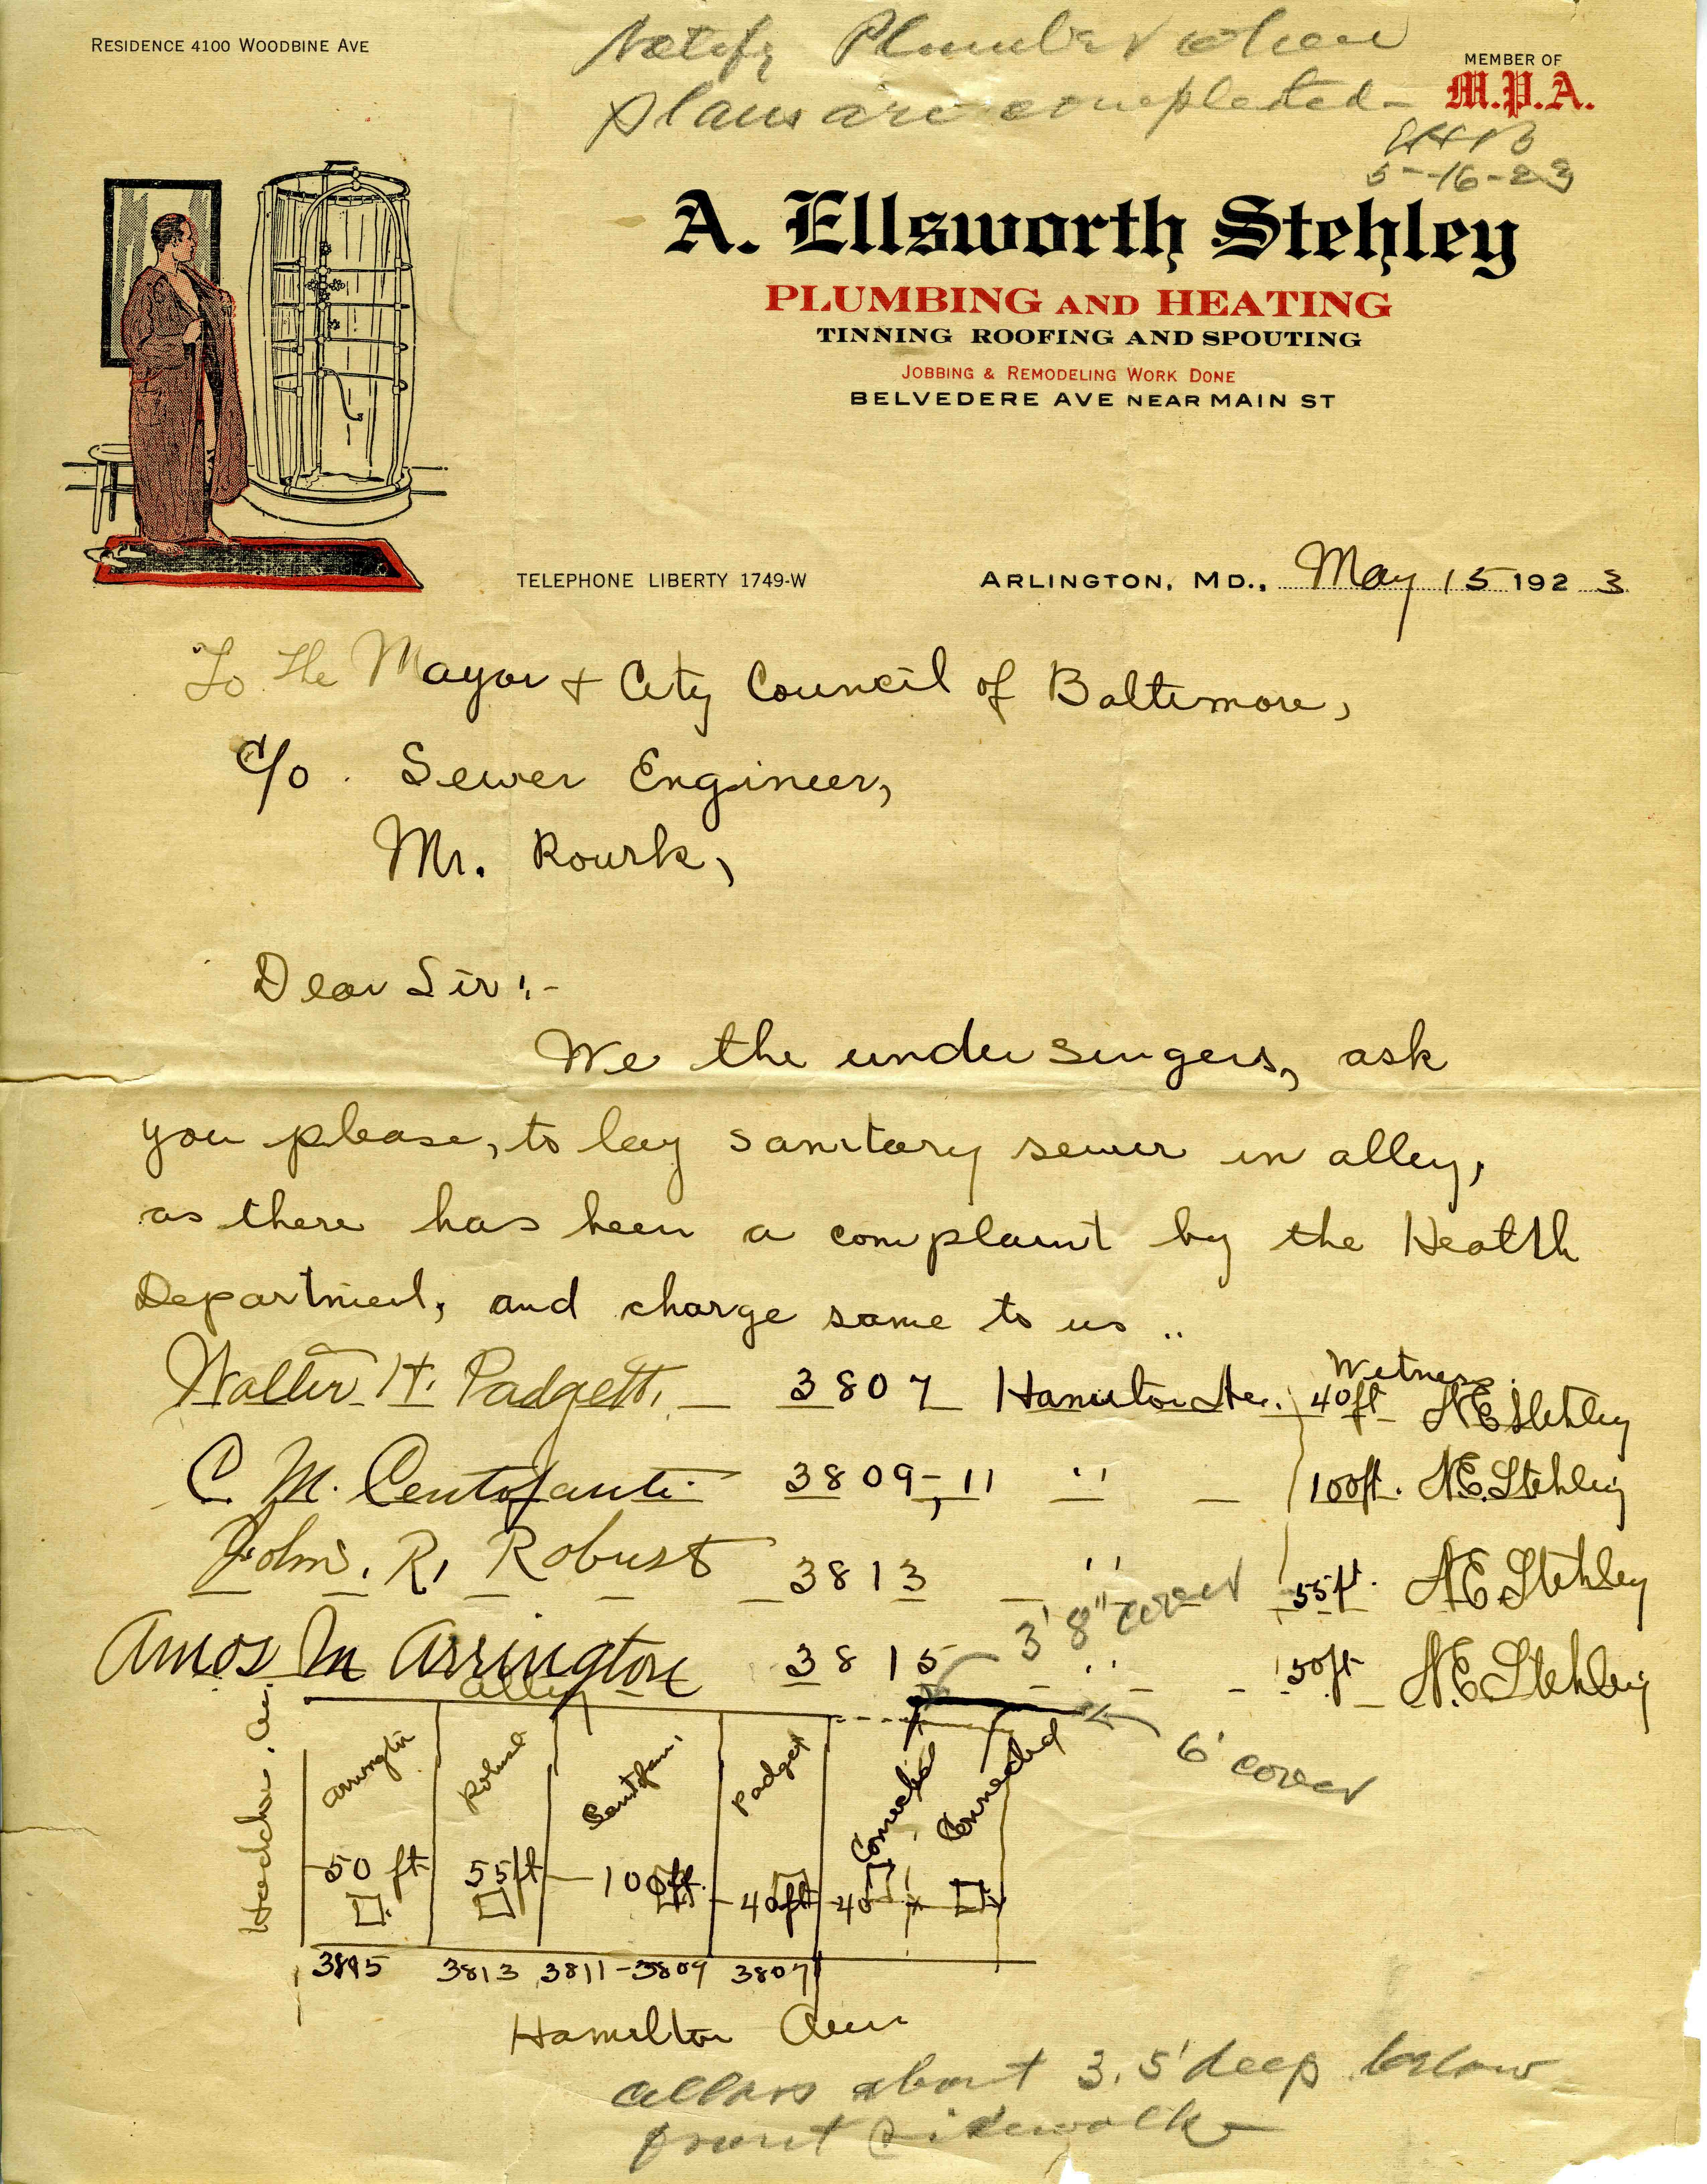 RESIDENCE 4100 WOODBINE AVE
Notify Plumber when
plans are completed-
5-16-23
MEMBER OF
M.P.A.
A. Ellsworth Stehley
PLUMBING AND HEATING
TINNING ROOFING AND SPOUTING
JOBBING & REMODELING WORK DONE
BELVEDERE AVE NEAR MAIN ST
TELEPHONE LIBERTY 1749-W
ARLINGTON, MD., May 15 1923
To the Mayor + City Council of Baltimore,
c/o. Sewer Engineer,
Mr. Rourk,
Dear Sir:-
We the under singers, ask
you please, to lay sanitary sewer in alley,
as there has been a complaint by the Heatlh
Department, and charge same to us..
Witness.
Walter H. Padgett. 3807 Hamilton Ave. 40ft A.E Stehley
C. M. Centofanti 3809-,11 " 100ft. A.E. Stehley
John. R. Robust 3813 " 55ft. A.E Stehley
3'8" cover
Amos M Arrington 3815 " 50ft A.E Stehley
alley
6' cover
Arrington Robust Centofanti Padgett Connected Connected
50 ft 55ft 100ft. 40ft 40
3815 3813 3811-3809 3807
Hamilton Ave
cellars about 3.5' deep below
front sidewalk